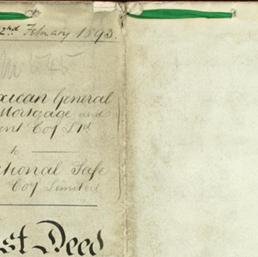 2nd February 1893.
xican General
Mortgage and
ent Coy Ltd
to
tional Safe
Coy Limited
st Deed